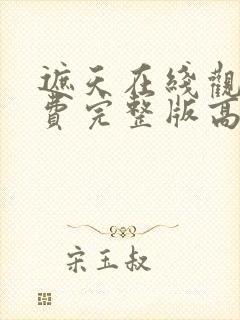 遮天在綫觀
費完整版高
宋玉叔